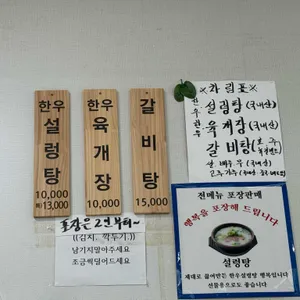 한우
설렁탕
10,000
13,000
한우
육개장
10,000
갈비탕
15,000
포장은 2인부터~
((김치. 깍두기))
남기지말아주세요
조금씩덜어드세요
※차림표※
한우 설렁탕(국내산)
한우 육개장(국내산)
갈비탕
쌀. 배추
전메뉴 포장판매
행복을 포장해 드립니다
설렁탕
제대로 끓여만든 한우설렁탕 행복입니다
선물용으로도 좋습니다